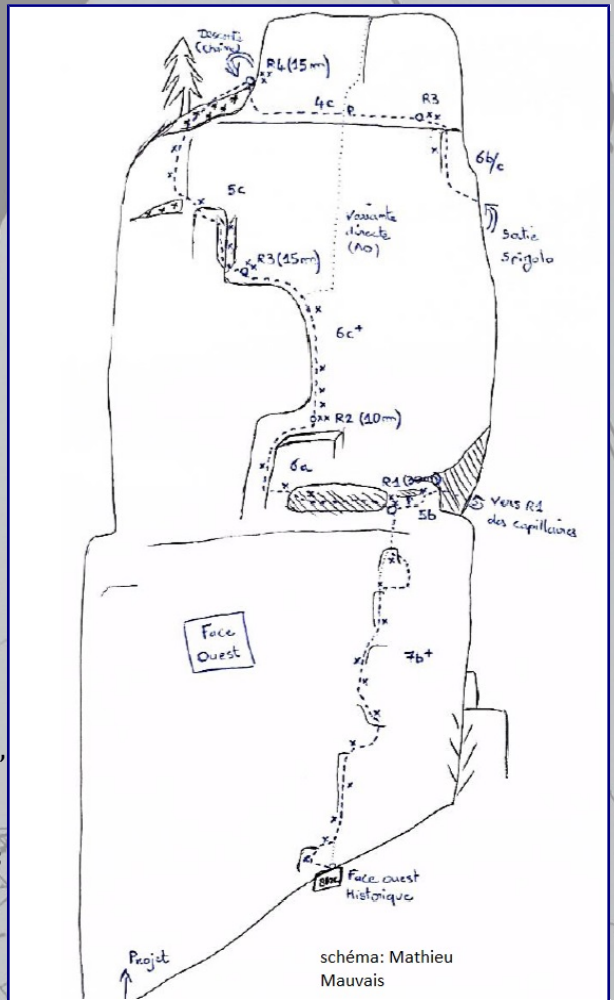 Descente
(chaîne)
R4 (15m)
4c
P.
R3
6b/c
5c
Variante
directe
(A0)
Sortie
Spigolo
R3 (15m)
6c+
R2 (10m)
6a
R1 (30m)
5b
Vers R1
des capillaires
Face
Ouest
7b+
Bloc
Face ouest
Historique
Projet
schéma: Mathieu
Mauvais